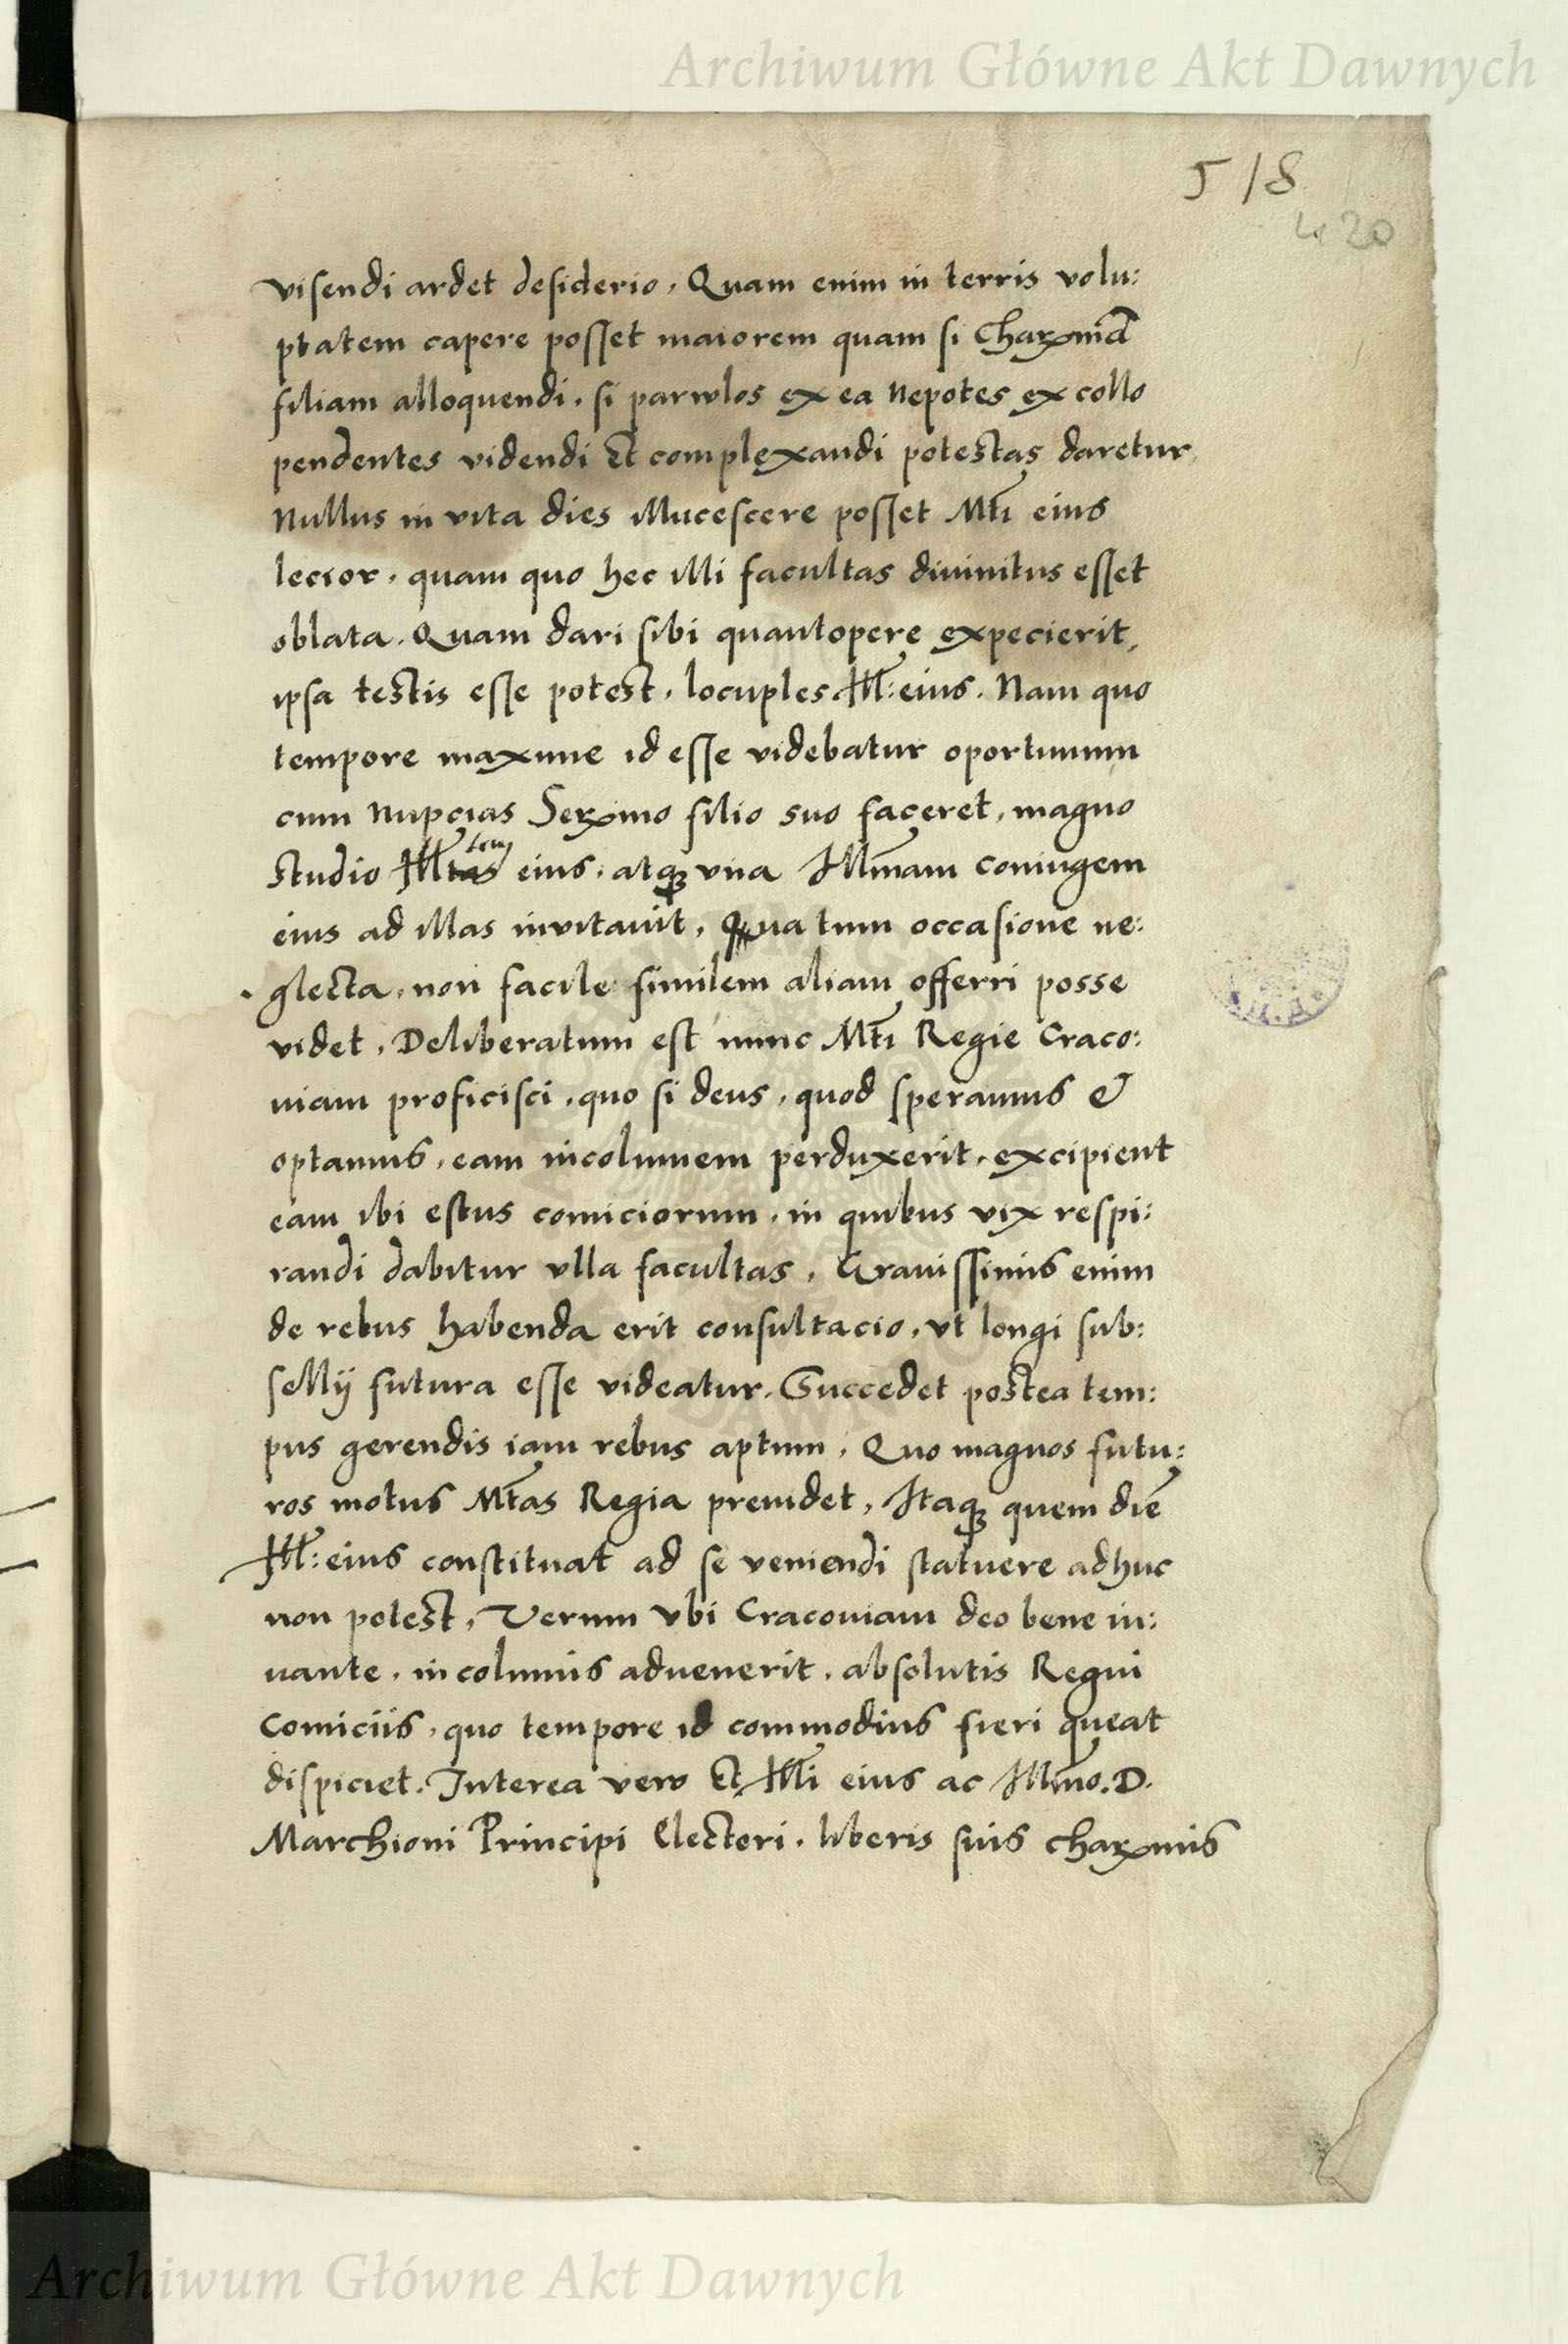 Archiwum Główne Akt Dawnych
518
420
visendi ardet desiderio, Quam enim in terris volu:
ptatem capere posset maiorem quam si Charxmā
filiam alloquendi, si parvulos ex ea Nepotes ex collo
pendentes videndi Et complexandi potestas daretur,
Nullus in vita dies illucescere posset Mti eius
lecior, quam quo hec illi facultas divinitus esset
oblata. Quam dari sibi quantopere expecierit,
ipsa testis esse potest, locuples Ill: eius. Nam quo
tempore maxime id esse videbatur oportunum
cum Nupcias Serxmo filio suo faceret, magno
studio Illtas tem eius, atq3 vna Illmam coniugem
eius ad illas invitauit, Qua tum occasione ne:
glecta, non facile similem aliam offerri posse
videt, Deliberatum est nunc Mti Regie Craco:
uiam proficisci, quo si deus, quod speramus &
optamus, eam incolumem perduxerit, excipient
eam ibi estus comiciorum, in quibus vix respi:
randi dabitur vlla facultas, Grauissimis enim
de rebus habenda erit consultacio, vt longi sub:
sellij futura esse videatur. Succedet postea tem:
pus gerendis iam rebus aptum, Quo magnos futu:
ros motus Mtas Regia preuidet, Itaq3 quem diē
Ill: eius constituat ad se veniendi statuere adhuc
non potest, Verum vbi Cracouiam deo bene iu:
uante, incolumis aduenerit, absolutis Regni
Comiciis, quo tempore id commodius fieri queat
dispiciet. Interea vero Et Illi eius ac Illmo. D.
Marchioni Principi Electori, liberis suis charxmis
Archiwum Główne Akt Dawnych